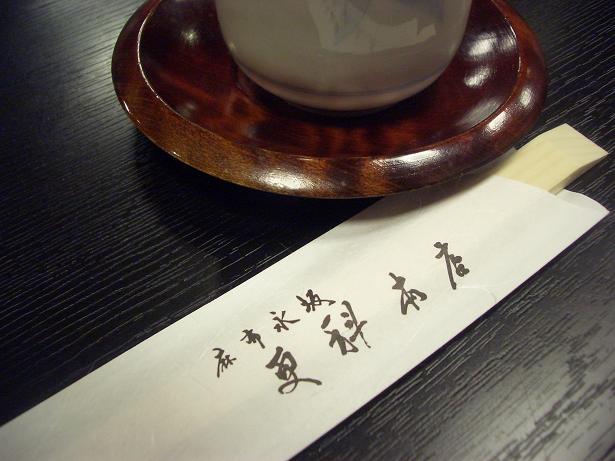 麻布永坂
更科本店